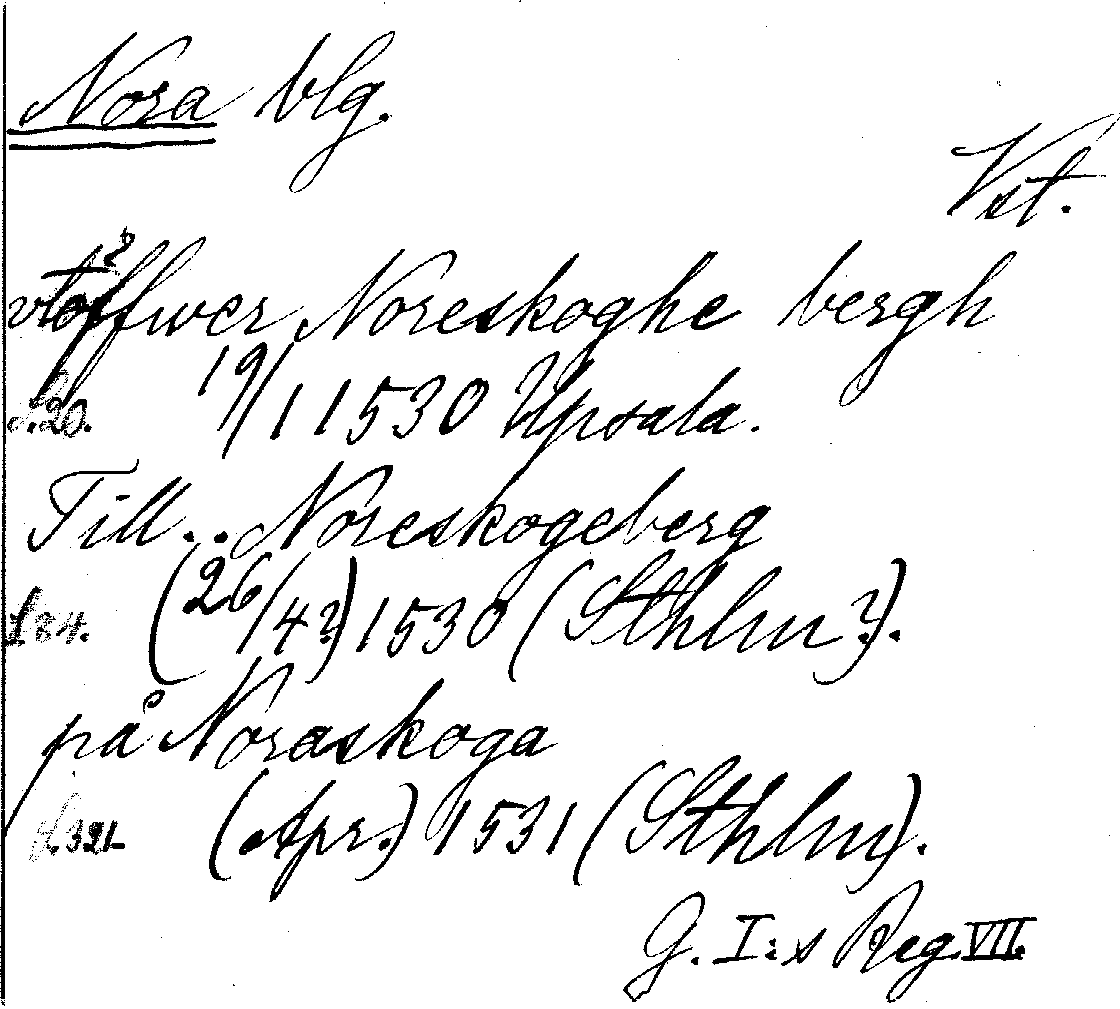 Nora blg.
Vst.
vtöffwer Noreskoghe bergh
f. 20. 19/1 1530 Upsala.
Till... Noreskogeberg
f. 84. (26/4?) 1530 (Sthlm?).
på Noraskoga
f. 321. (Apr.) 1531 (Sthlm).
G. I:s Reg. VII.